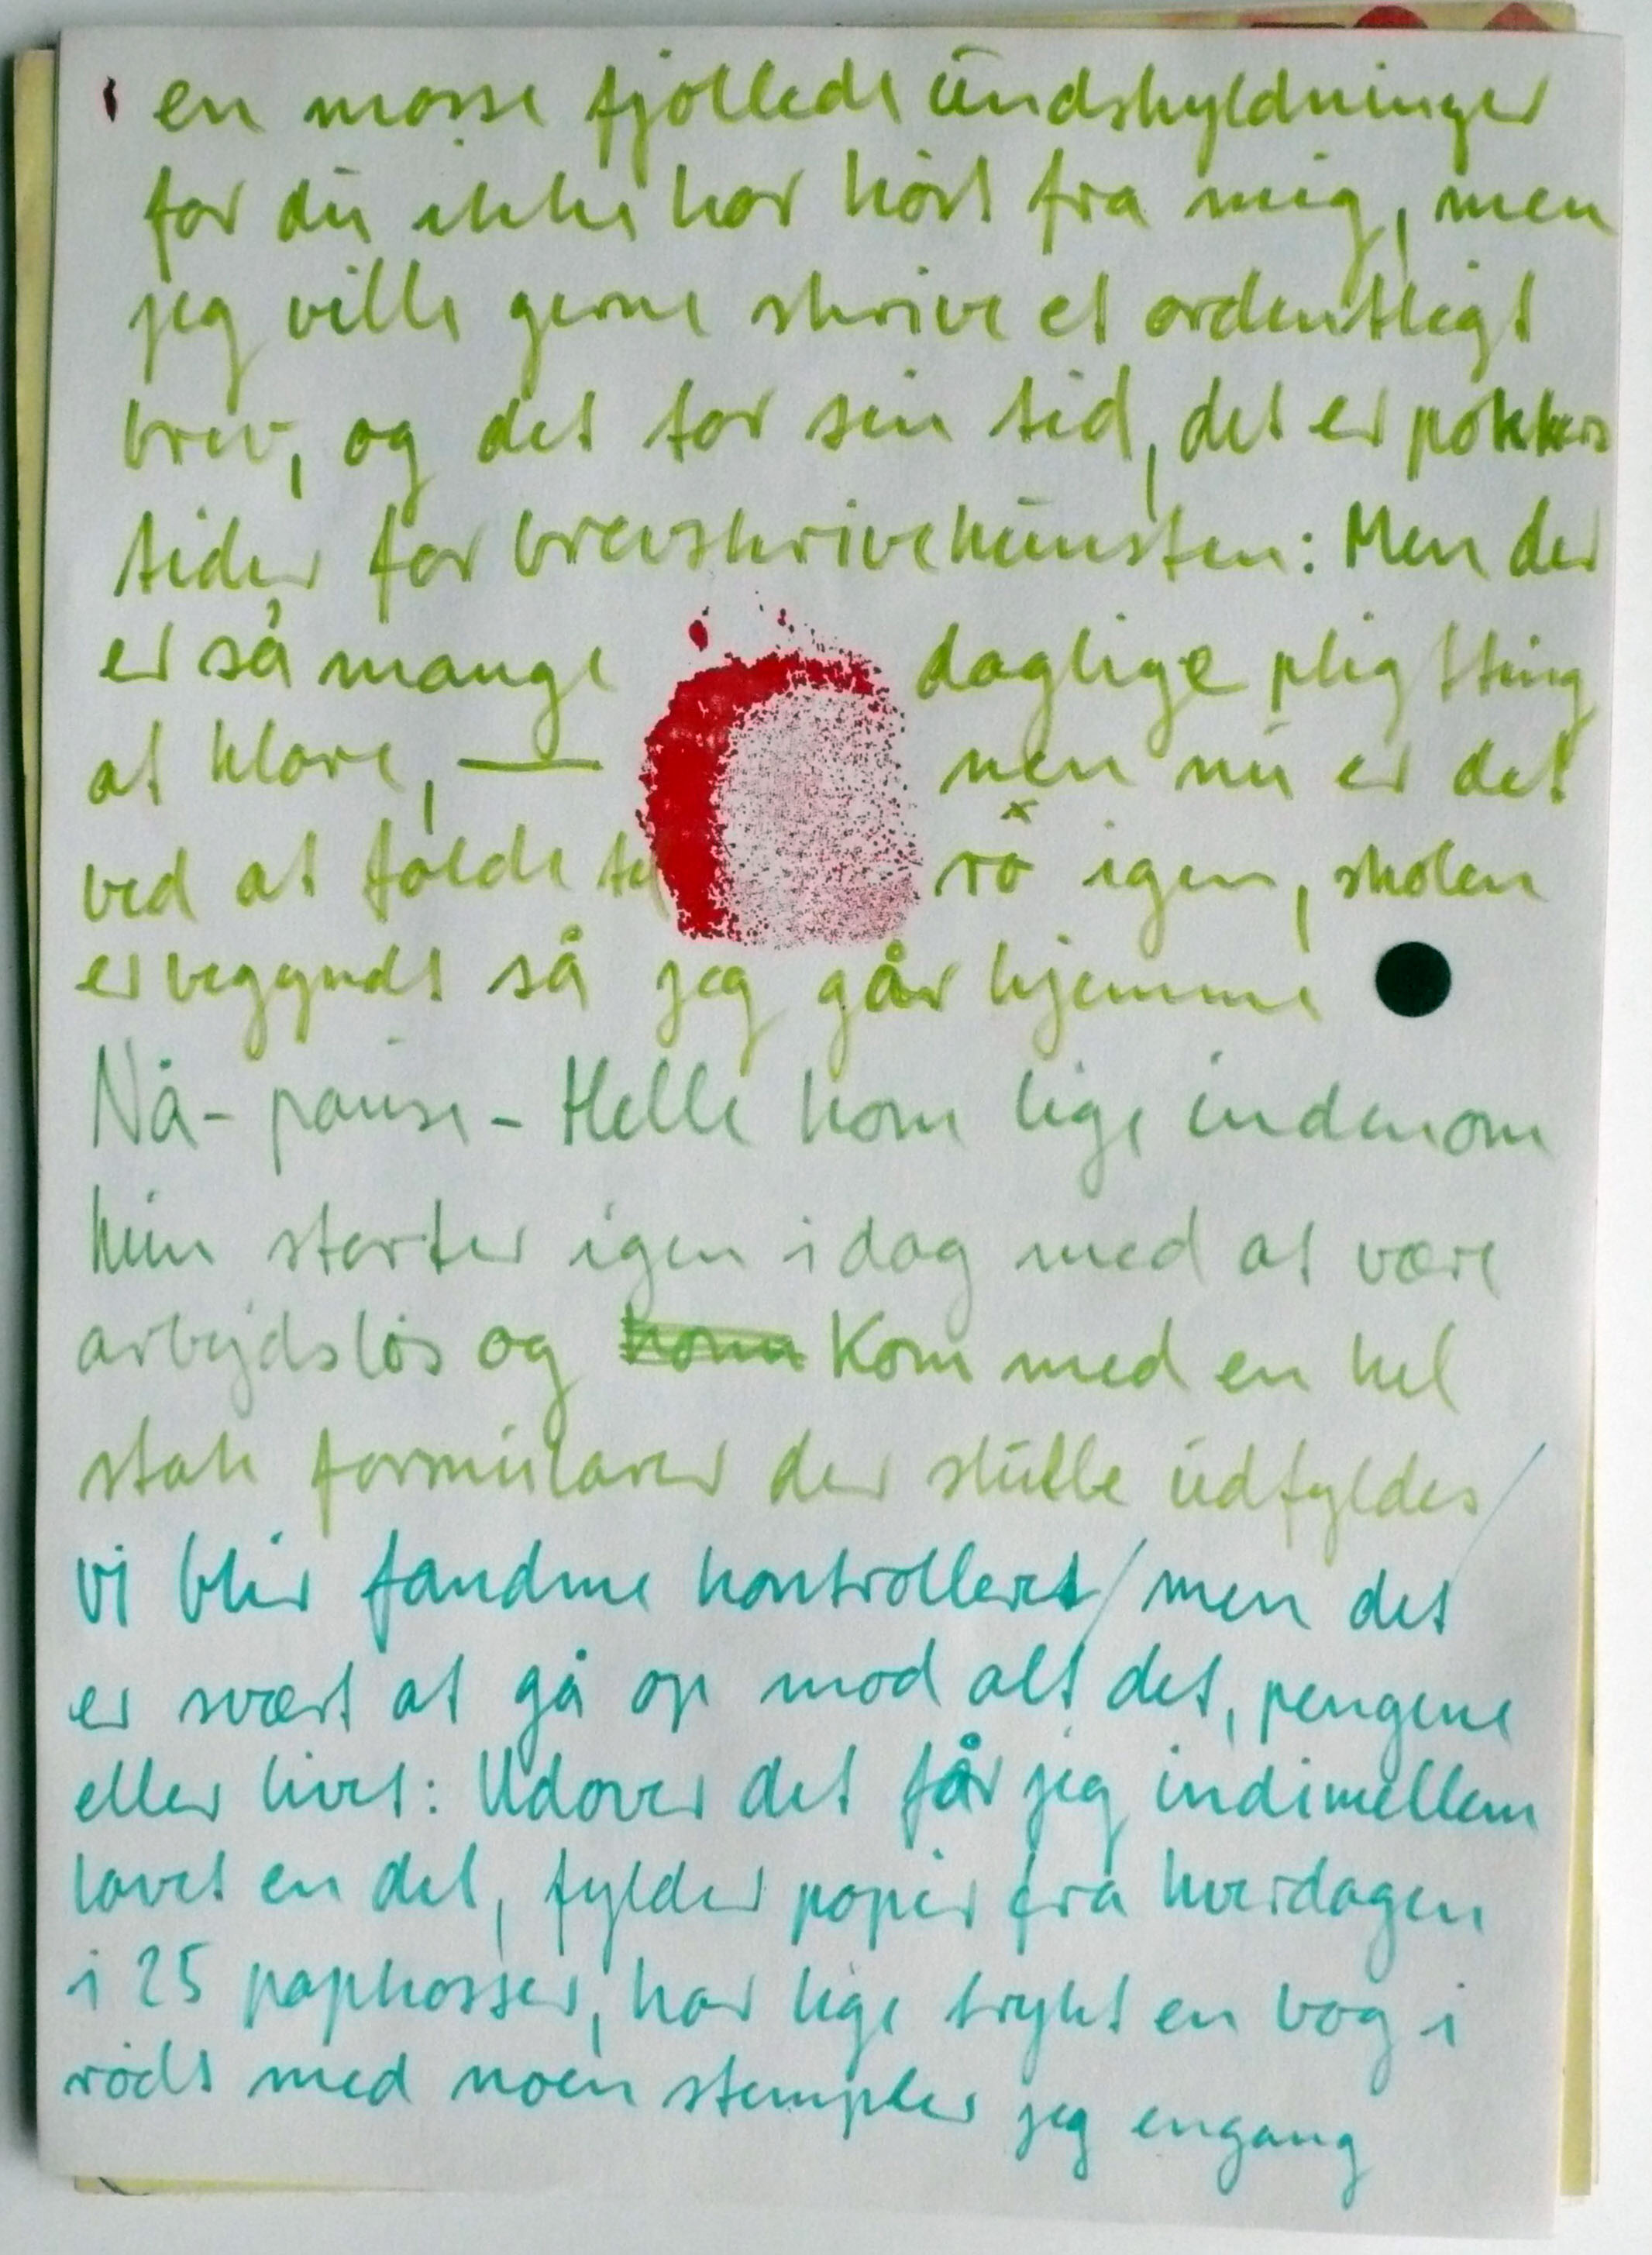 en masse fjollede undskyldninger
for du ikke har hørt fra mig, men
jeg ville gerne skrive et ordentligt
brev, og det tar sin tid, det er pokkers
tider for brevskrivekunsten: Men der
er så mange daglige pligtting
at klare, — men nu er det
ved at falde til ro igen, skolen
er begyndt så jeg går hjemme
Nå - pause - Helle kom lige indenom
hun starter igen i dag med at være
arbejdsløs og kom Kom med en hel
stak formularer der skulle udfyldes/
vi blir fandme kontrolleret/ men det
er svært at gå op mod alt det, pengene
eller livet: Udover det får jeg indimellem
lavet en del, fylder papir fra hverdagen
i 25 papkasser, har lige trykt en bog i
rødt med noen stempler jeg engang